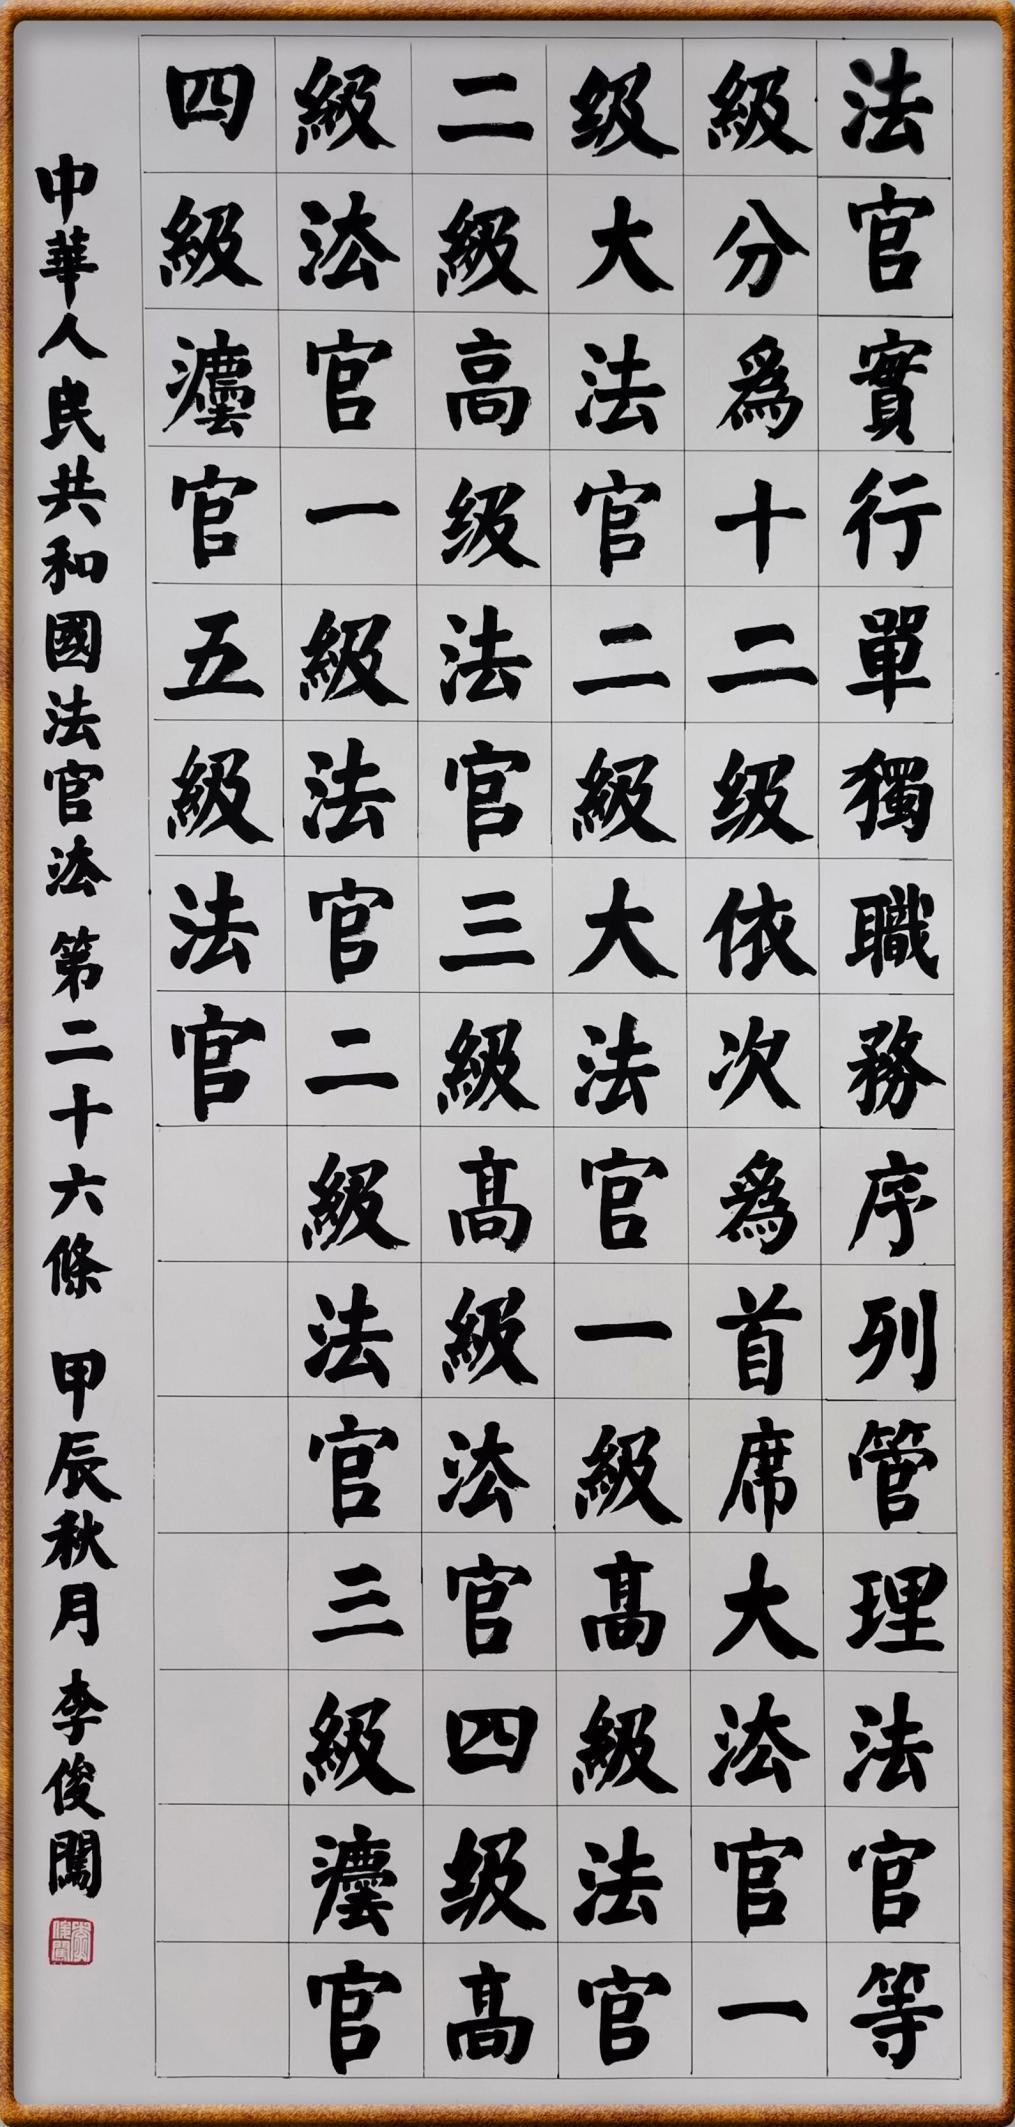 法官實行單獨職務序列管理法官等
級分爲十二级依次爲首席大法官一
级大法官二級大法官一級髙級法官
二級高级法官三級髙級法官四级髙
級法官一級法官二級法官三級灋官
四級灋官五級法官
中華人民共和國法官法 第二十六條 甲辰秋月 李俊闖